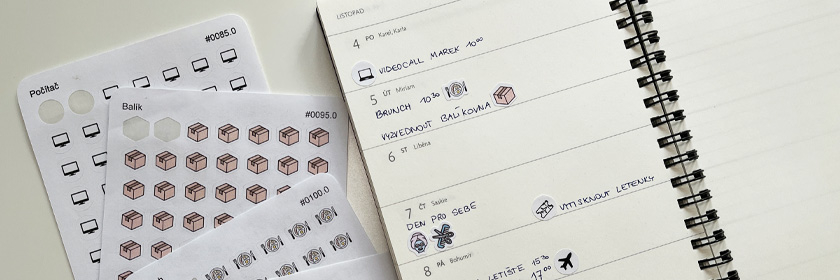 Počítač
#0085.0
Balík
#0095.0
#0100.0
LISTOPAD
4 PO Karel, Karla
VIDEOCALL MAREK 10⁰⁰
5 ÚT Miriam
BRUNCH 10³⁰
VYZVEDNOUT BALÍKOVNA
6 ST Liběna
7 ČT Saskie
DEN PRO SEBE
VYTISKNOUT LETENKY
8 PÁ Bohumír
LETIŠTĚ 15³⁰
17⁰⁰